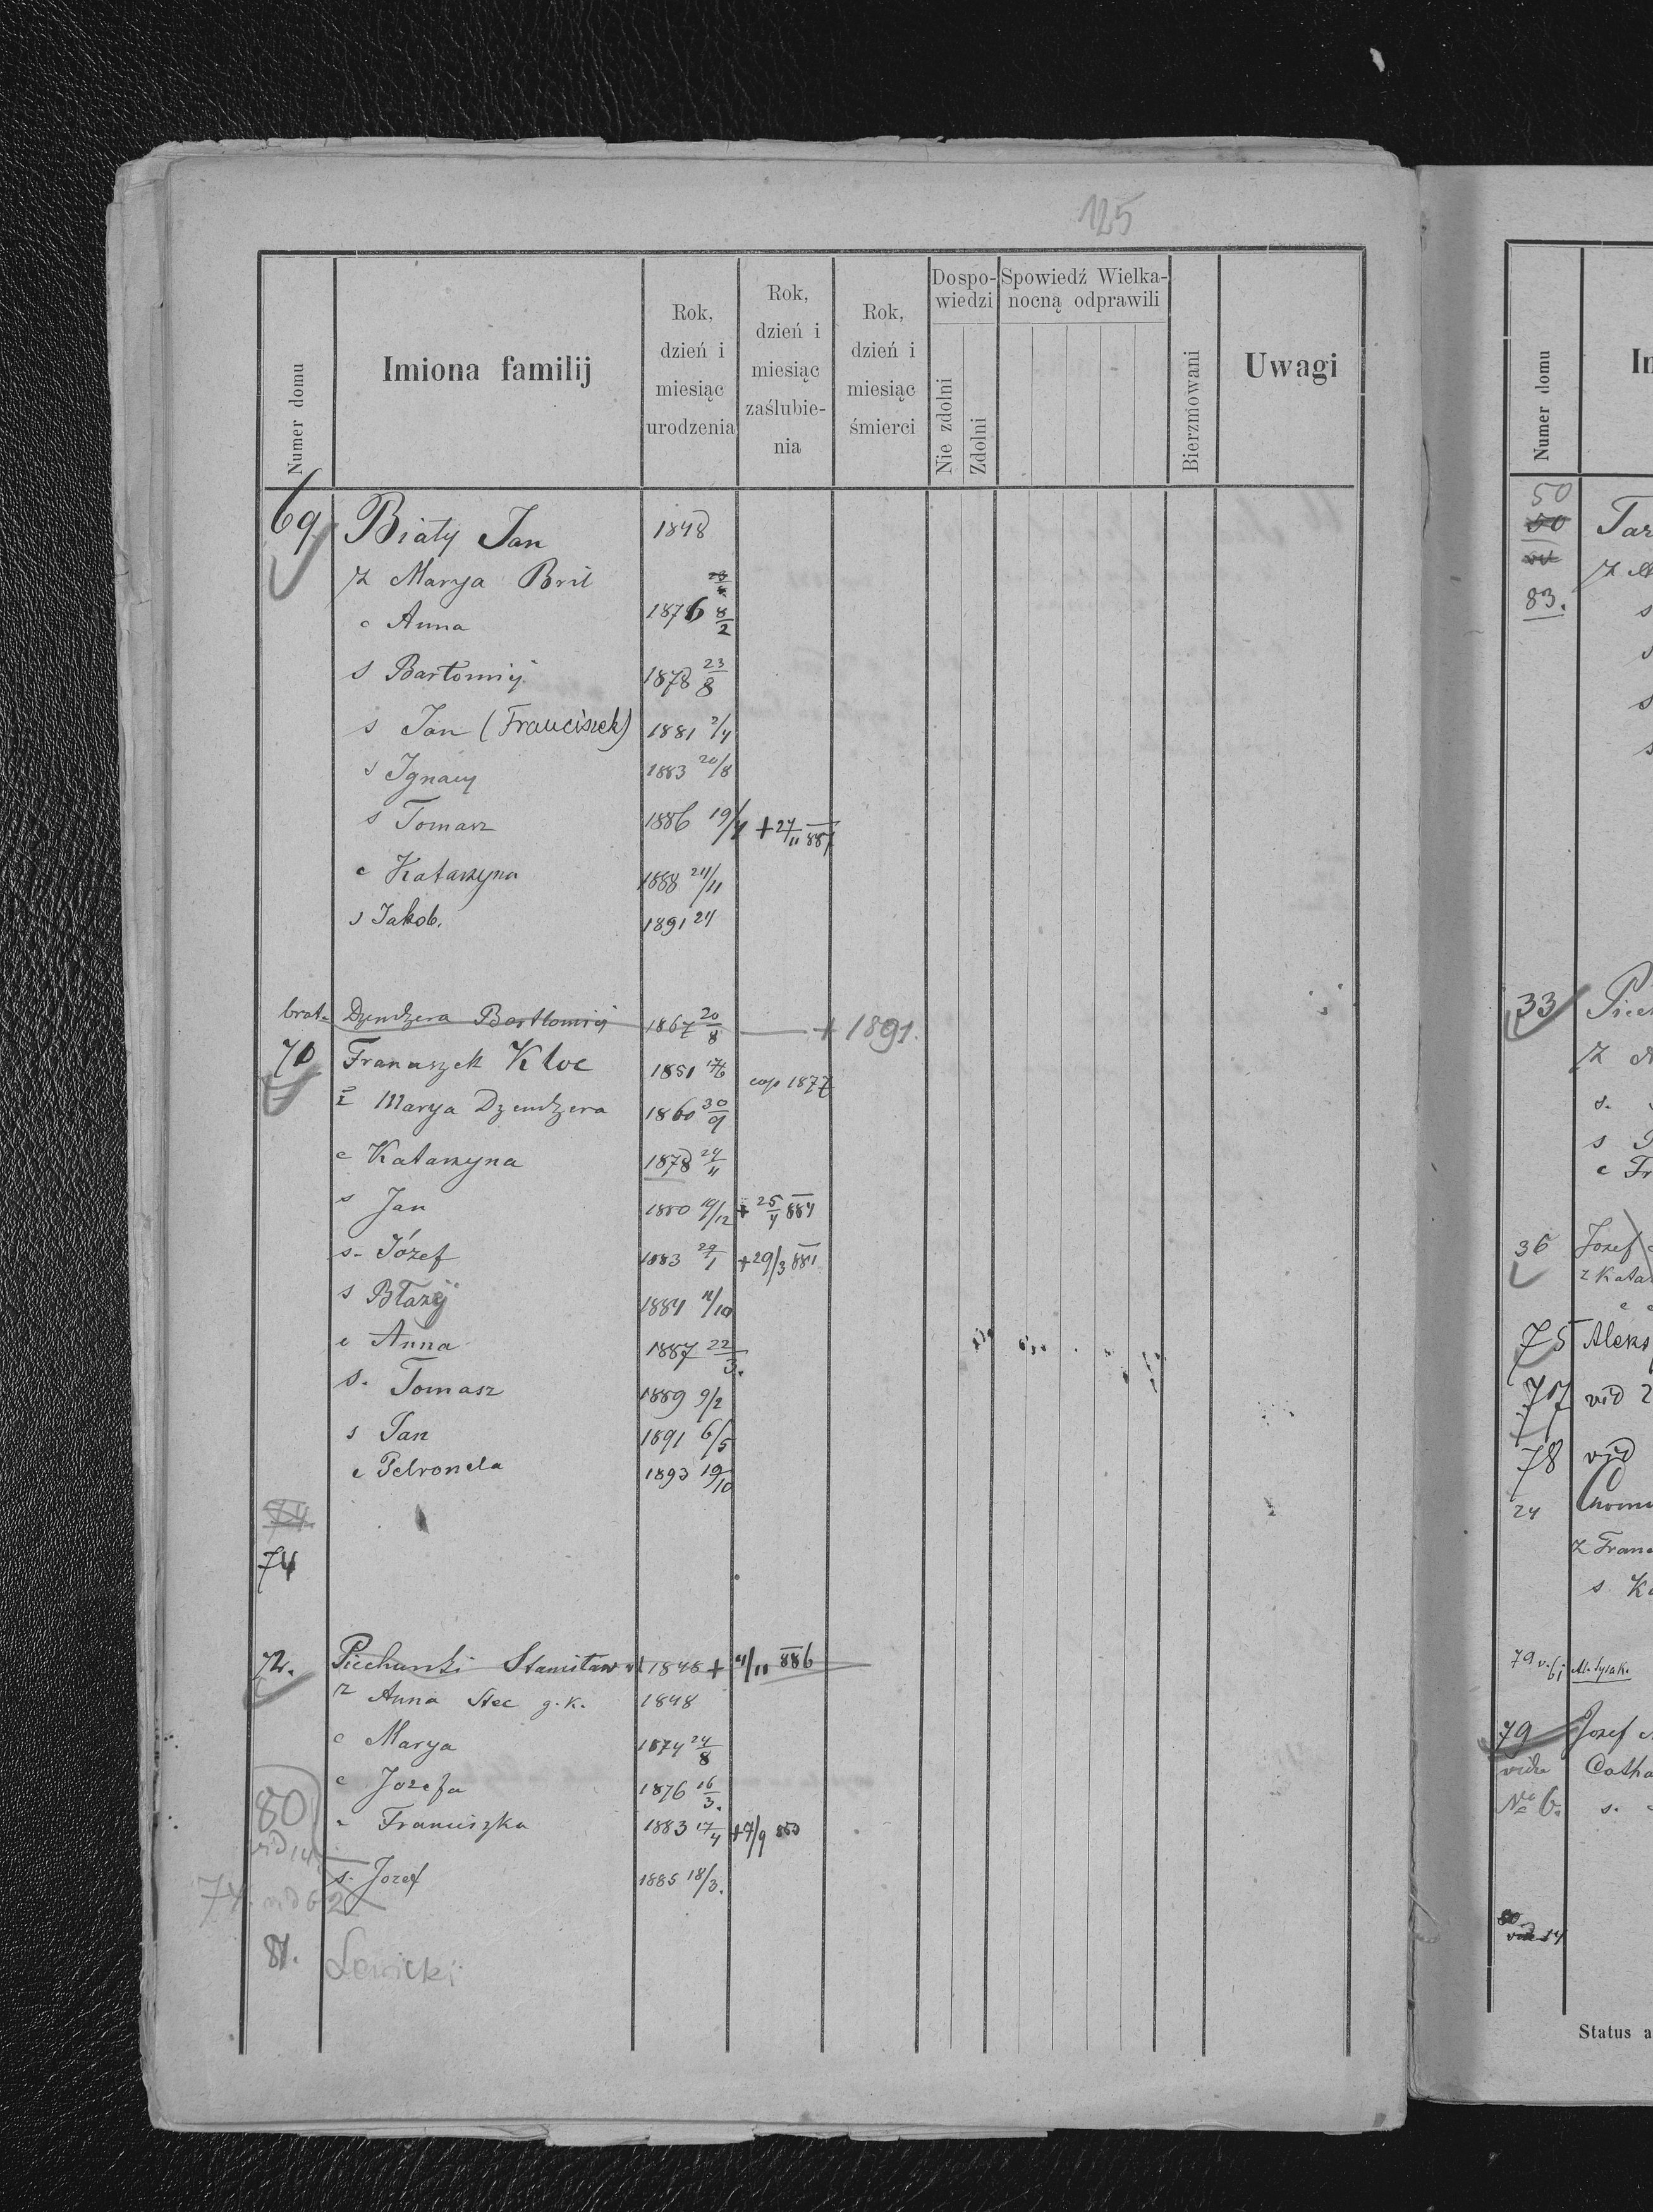 125
Numer domu
Imiona familij
Rok, dzień i miesiąc urodzenia
Rok, dzień i miesiąc zaślubienia
Rok, dzień i miesiąc śmierci
Dospowiedzi
Nie zdolni
Zdolni
Spowiedź Wielkanocną odprawili
Bierzmowani
Uwagi
69. Biały Jan 1848
ż Marya Bril
c Anna 1876 8/2
s Bartomij 1878 23/8
s Jan (Franciszek) 1881 2/4
s Ignacy 1883 20/8
s Tomasz 1886 19/4 + 27/11 887
c Katarzyna 1888 24/11
s Jakob. 1891 24
brat Dzendzera Bartłomiej 1867 20/8 — + 1891.
70 Franciszek Kloc 1851 cop 1877
ż Marya Dzendzera 1860 30/9
c Katarzyna 1878 24/11
s Jan 1880 /12 + 25/4 884
s. Józef 1883 27/1 + 29/3 881
s Błażej 1884 11/10
c Anna 1887 22/3.
s. Tomasz 1889 9/2
s Jan 1891 6/5
c Petronela 1893 19/10
74
74
72. Piechurski Stanisław 1848 + 11/11 886
ż Anna Stec g.k. 1848
c Marya 1874 24/8
c Jozefa 1876 16/3.
c Franciszka 1883 17/4 + 7/9
80
vid 14
s. Jozef 1885 18/3.
74. vid 62
81. Lewicki
Numer domu
50
50 Tar
ż
83. s
s
s
s
33 Piech
ż
s.
s
c Fr
36 Jozef
ż Kata
75 Aleks
77 vid 2
78 vid
24 Chom
ż Fran
s K
79 v. 61
79 Jozef
vide Catha
No 6. s.
80
vide 14
Status a